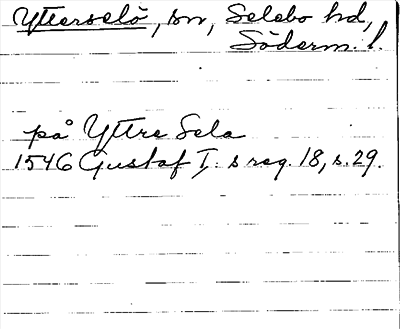 Ytterselö, sn, Selebo hd,
Söderm. l.
på Yttre Sela
1546 Gustaf I:s reg. 18, s. 29.